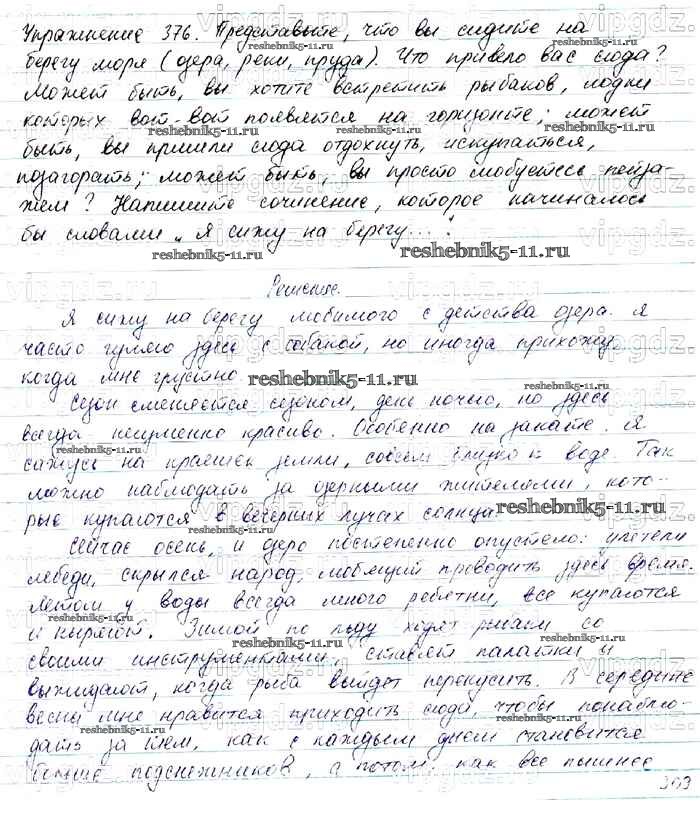 Упражнение 376. Представьте, что вы сидите на
берегу моря (озера, реки, пруда). Что привело вас сюда?
Может быть, вы хотите встретить рыбаков, лодки
которых вот-вот появятся на горизонте; может
быть, вы пришли сюда отдохнуть, искупаться,
позагорать; может быть, вы просто любуетесь пейза-
жем? Напишите сочинение, которое начиналось
бы словами „Я сижу на берегу...".
Решение.
Я сижу на берегу любимого с детства озера. Я
часто гуляю здесь с собакой, но иногда прихожу,
когда мне грустно.
Сезон сменяется сезоном, день ночью, но здесь
всегда неизменно красиво. Особенно на закате. Я
сажусь на краешек земли, совсем близко к воде. Так
можно наблюдать за озерными жителями, кото-
рые купаются в вечерних лучах солнца.
Сейчас осень, и озеро постепенно опустело: улетели
лебеди, скрылся народ, любящий проводить здесь время.
Летом у воды всегда много ребятни, все купаются
и ныряют. Зимой по льду ходят рыбаки со
своими инструментами, ставят палатки и
выжидают, когда рыба выйдет перекусить. В середине
весны мне нравится приходить сюда, чтобы понаблю-
дать за тем, как с каждым днем становится
больше подснежников, а потом, как все пышнее
303
reshebnik5-11.ru
vipgdz.ru